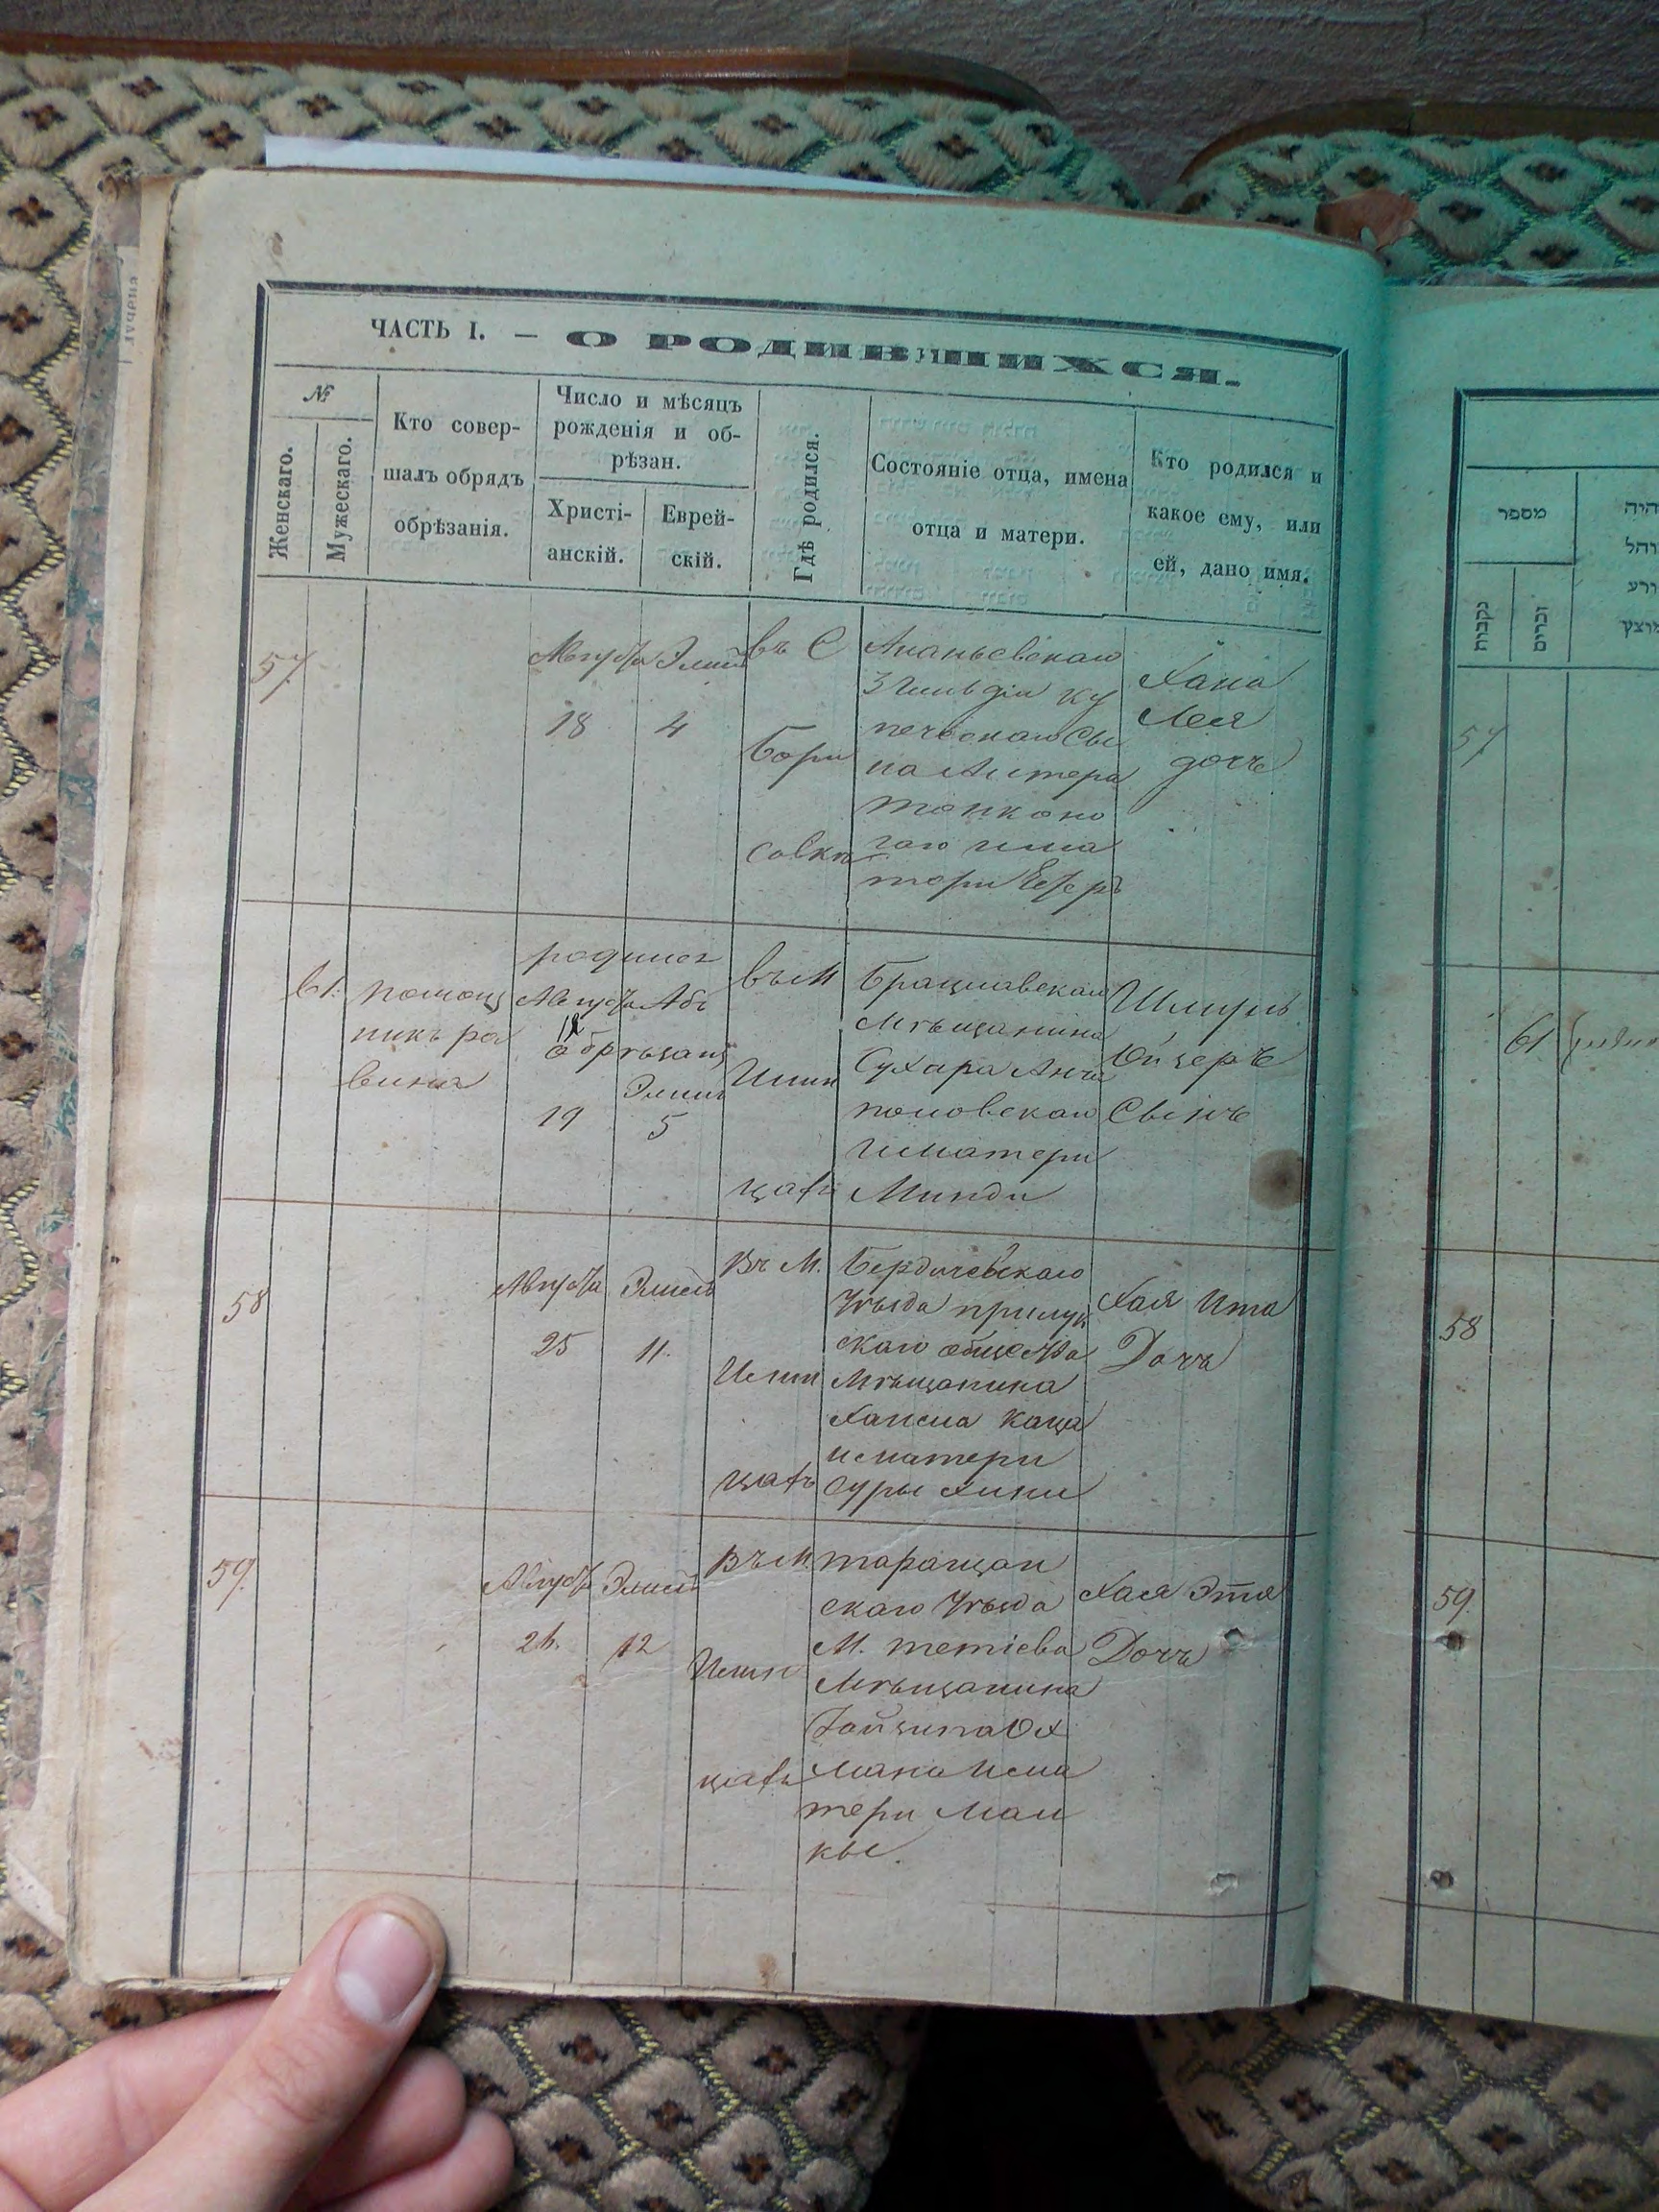 ЧАСТЬ I. — О РОДИВШИХСЯ.
№
Женскаго.
Мужескаго.
Кто совер-
шалъ обрядъ
обрѣзанія.
Число и мѣсяцъ
рожденія и об-
рѣзан.
Христі-
анскій.
Еврей-
скій.
Гдѣ родился.
Состояніе отца, имена
отца и матери.
Кто родился и
какое ему, или
ей, дано имя.
57
Августа
18
4
въ С
Бори
совкѣ
Ананьевскаго
3 гильдіи ку
печескаго сы
на
тонконо
гаго има
тери
Хана
Лея
дочь
61.
помощ
никъ ра
вина
родился
Августа
обрѣзанъ
19
5
въ М
Илин
цахъ
Брацлавскаго
Мѣщанина
Сухара
половскаго
иматери
Минди
Ойзеръ
Сынъ
58
Августа
25
11.
Въ М.
Илин
цахъ
Бердичевскаго
Уѣзда прилук
скаго общества
Мѣщанина
Хаима Каца
иматери
Суры Хини
Хая Ита
Дочь
59.
Августа
26.
12
Въ М.
Илин
цахъ
таращан
скаго Уѣзда
М. тетіева
Мѣщанина
мана има
тери Мали
кы.
Хая Этя
Дочь
מספר
נקבות
זכרים
57
61
58
59.